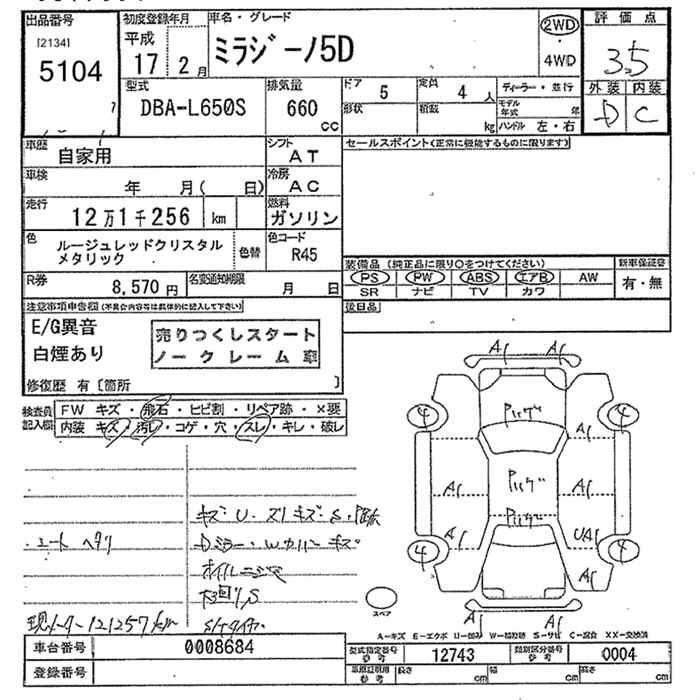 出品番号
[2134]
5104
初度登録年月
平成
17 2月
車名・グレード
ミラジーノ5D
2WD
4WD
評価点
3.5
外装 内装
D C
型式
DBA-L650S
排気量
660
cc
ドア
5
定員
4人
形状
積載
kg
ディーラー・並行
モデル年式
年
ハンドル 左・右
車歴
自家用
シフト
AT
セールスポイント(正常に機能するものに限ります)
車検
年 月( 日)
冷房
AC
走行
12万1千256 km
燃料
ガソリン
色
ルージュレッドクリスタル
メタリック
色替
色コード
R45
装備品 (純正品に限り○をつけてください)
新車保証書
PS PW ABS エアB AW
SR ナビ TV カワ
有・無
R券
8,570円
名変通知期限
月 日
後日品
注意事項申告欄(不具合内容等は具体的に記入して下さい)
E/G異音
白煙あり
売りつくしスタート
ノークレーム車
修復歴 有〔箇所 〕
検査員
記入欄
FW キズ・飛石・ヒビ割・リペア跡・×要
内装 キズ・汚レ・コゲ・穴・スレ・キレ・破レ
A1 A1
4 4
A1
A1 A1
A1 UA1
4 4
A1
A1 A1
シートヘタリ
Dミラー・Wカバーキズ
オイルニジミ
現メーター121257km
スペア
A-キズ E-エクボ U-凹み W-補修跡 S-サビ C-腐食 XX-交換済
車台番号
0008684
型式指定番号
参考
12743
類別区分番号
参考
0004
登録番号
車庫証明用
参考
長さ
cm
幅
cm
高さ
cm